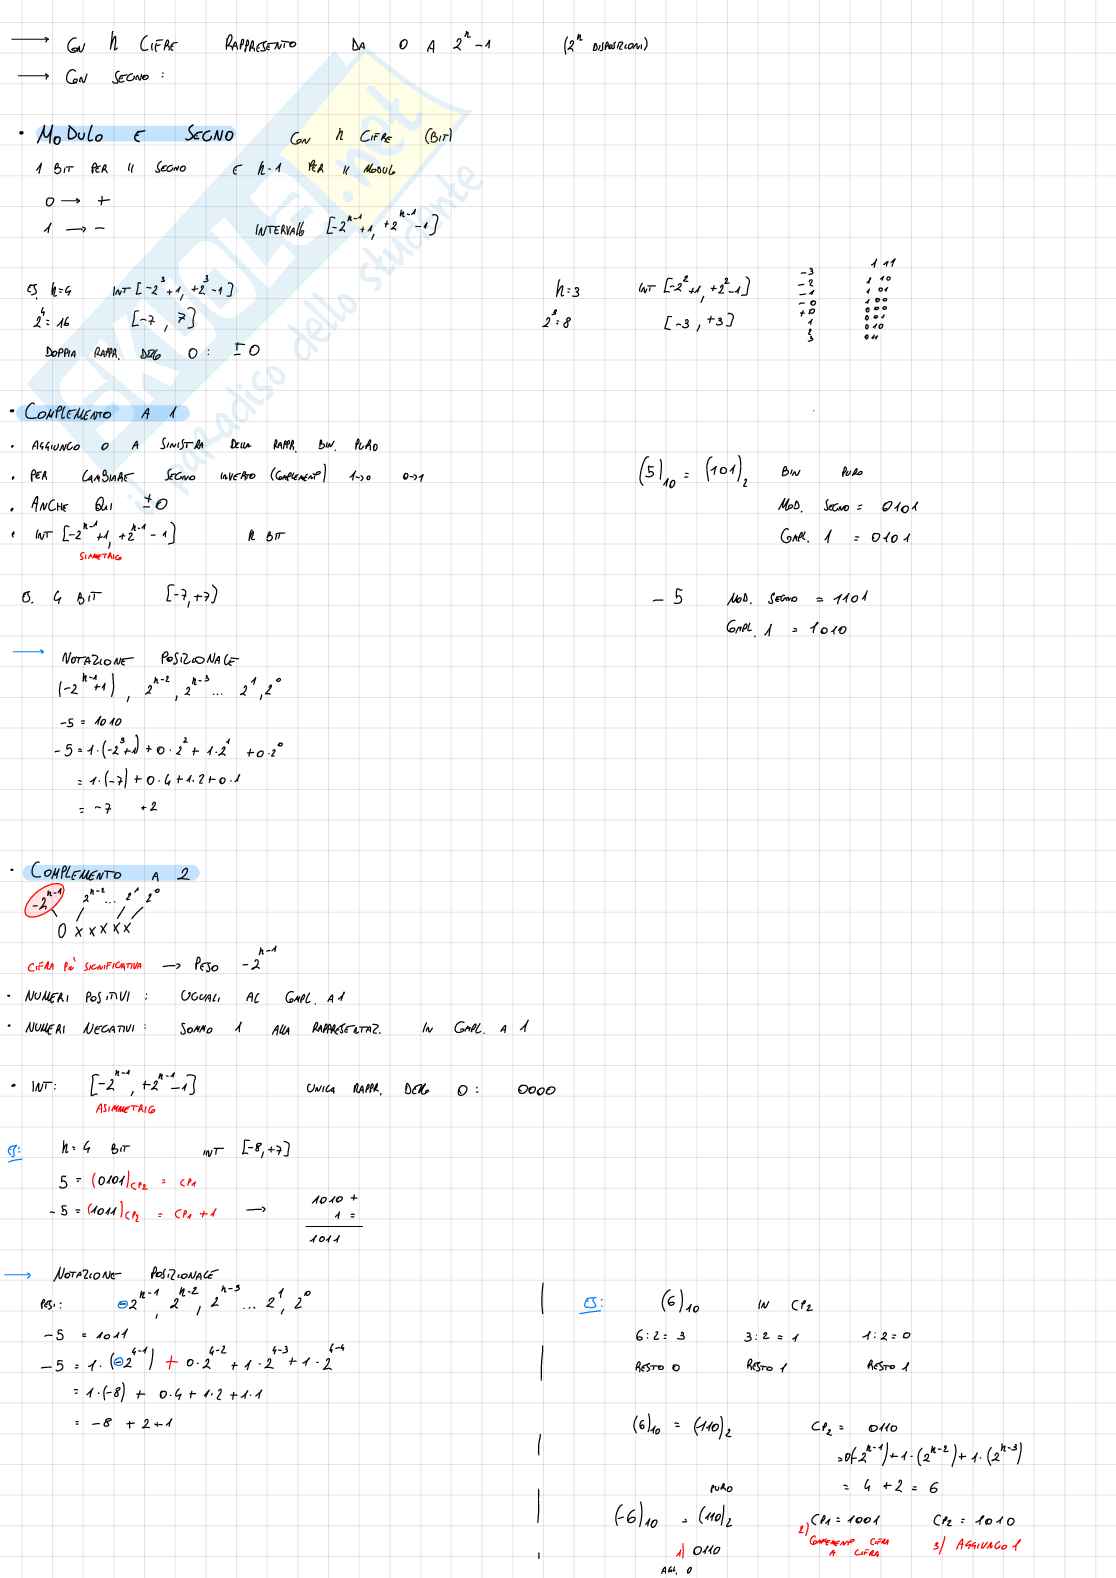 → CON n CIFRE RAPPRESENTO DA 0 A 2^n - 1 (2^n DISPOSIZIONI)
→ CON SEGNO :
• MODULO E SEGNO CON n CIFRE (BIT)
1 BIT PER IL SEGNO E n-1 PER IL MODULO
0 → +
1 → -
INTERVALLO [-2^{n-1}+1, +2^{n-1}-1]
ES. n=4 INT [-2^3+1, +2^3-1]
2^4=16 [-7, 7]
DOPPIA RAPP. DELLO 0 : ±0
n=3 INT [-2^2+1, +2^2-1]
2^3=8 [-3, +3]
-3 1 11
-2 1 10
-1 1 01
-0 1 00
+0 0 00
1 0 01
2 0 10
3 0 11
• COMPLEMENTO A 1
• AGGIUNGO 0 A SINISTRA DELLA RAPPR. BIN. PURO
• PER CAMBIARE SEGNO INVERTO (COMPLEMENTO) 1→0 0→1
• ANCHE QUI ±0
• INT [-2^{n-1}+1, +2^{n-1}-1] n BIT
SIMMETRICO
ES. 4 BIT [-7,+7]
(5)_10 = (101)_2 BIN PURO
MOD. SEGNO = 0101
COMPL. 1 = 0101
- 5 MOD. SEGNO = 1101
COMPL. 1 = 1010
→ NOTAZIONE POSIZIONALE
(-2^{n-1}+1), 2^{n-2}, 2^{n-3} ... 2^1, 2^0
-5 = 1010
-5 = 1·(-2^3+1) + 0·2^2 + 1·2^1 + 0·2^0
= 1·(-7) + 0·4 + 1·2 + 0·1
= -7 +2
• COMPLEMENTO A 2
-2^{n-1} 2^{n-2} ... 2^1 2^0
0 x x x x x
CIFRA PIÙ SIGNIFICATIVA → PESO -2^{n-1}
• NUMERI POSITIVI : UGUALI AL COMPL. A 1
• NUMERI NEGATIVI : SOMMO 1 ALLA RAPPRESENTAZ. IN COMPL. A 1
• INT: [-2^{n-1}, +2^{n-1}-1] UNICA RAPPR. DELLO 0 : 0000
ASIMMETRICO
ES: n=4 BIT INT [-8,+7]
5 = (0101)_CP2 = CP1
-5 = (1011)_CP2 = CP1 + 1 →
1010 +
1 =
1011
→ NOTAZIONE POSIZIONALE
PESI: -2^{n-1}, 2^{n-2}, 2^{n-3} ... 2^1, 2^0
-5 = 1011
-5 = 1·(-2^{4-1}) + 0·2^{4-2} + 1·2^{4-3} + 1·2^{4-4}
= 1·(-8) + 0·4 + 1·2 + 1·1
= -8 + 2+1
ES: (6)_10 IN CP2
6:2=3 3:2=1 1:2=0
RESTO 0 RESTO 1 RESTO 1
(6)_10 = (110)_2 CP2 = 0110
=0(-2^{n-1})+1·(2^{n-2})+1·(2^{n-3})
= 4 + 2 = 6
PURO
(-6)_10 = (110)_2 CP1 = 1001 CP2 = 1010
1) 0110
AGG. 0
2) COMPLEMENTO CIFRA
A CIFRA
3) AGGIUNGO 1
SKUOLA.net
il paradiso dello studente